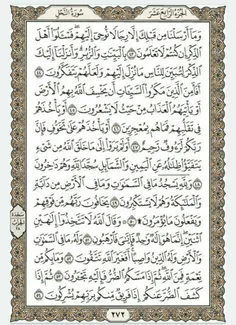 الجزء الرابع عشر
سورة النحل
وما أرسلنا من قبلك إلا رجالا نوحي إليهم فسئلوا أهل
الذكر إن كنتم لا تعلمون ٤٣ بالبينت والزبر وأنزلنا إليك
الذكر لتبين للناس ما نزل إليهم ولعلهم يتفكرون ٤٤
أفأمن الذين مكروا السيات أن يخسف الله بهم الأرض
أو يأتيهم العذاب من حيث لا يشعرون ٤٥ أو يأخذهم
في تقلبهم فما هم بمعجزين ٤٦ أو يأخذهم على تخوف فإن
ربكم لرءوف رحيم ٤٧ أولم يروا إلى ما خلق الله من شيء
يتفيؤا ظلله عن اليمين والشمائل سجدا لله وهم داخرون
٤٨ ولله يسجد ما في السموت وما في الأرض من دابة
والملئكة وهم لا يستكبرون ٤٩ يخافون ربهم من فوقهم
ويفعلون ما يؤمرون ۩ ٥٠ وقال الله لا تتخذوا إلهين
اثنين إنما هو إله وحد فإيي فارهبون ٥١ وله ما في السموت
والأرض وله الدين واصبا أفغير الله تتقون ٥٢ وما بكم من
نعمة فمن الله ثم إذا مسكم الضر فإليه تجرون ٥٣ ثم إذا
كشف الضر عنكم إذا فريق منكم بربهم يشركون ٥٤
٢٧٢